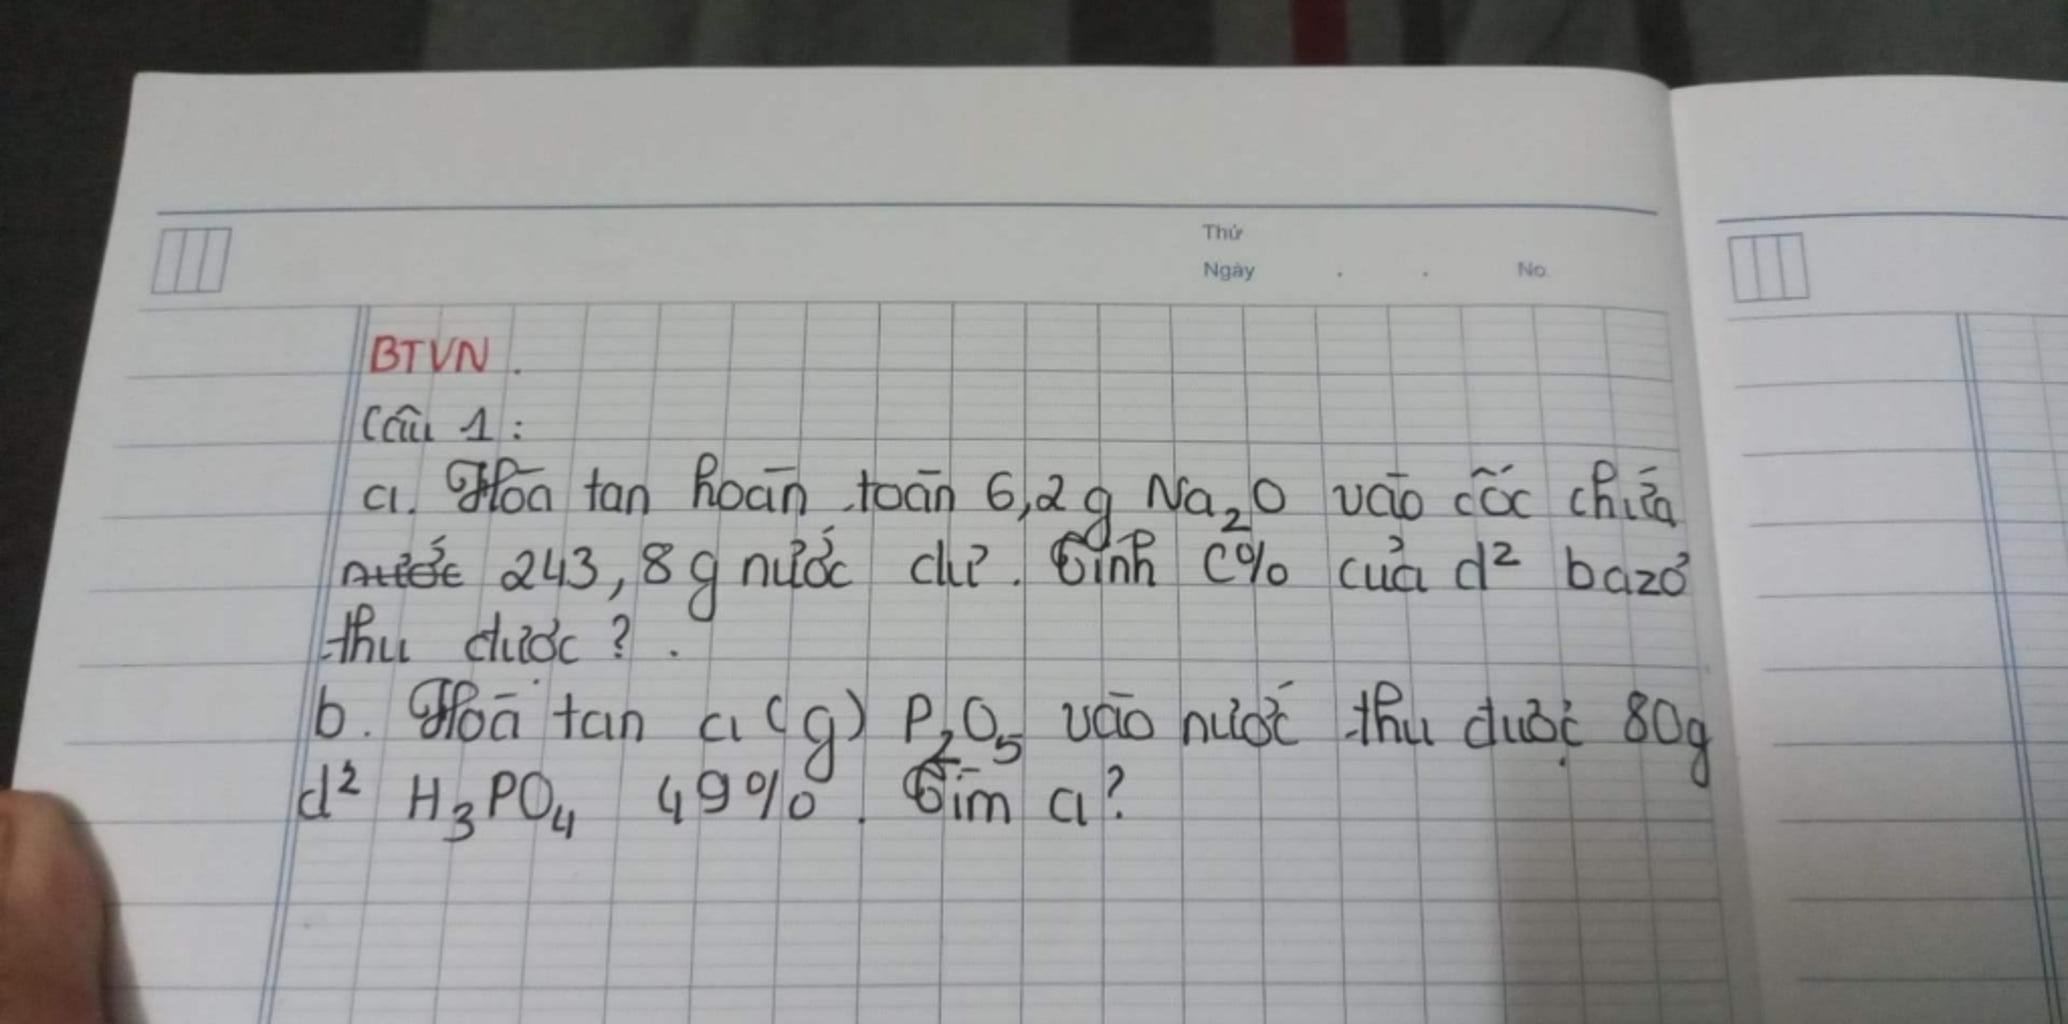 Thứ
Ngày . . No.
BTVN.
Câu 1:
a. Hòa tan hoàn toàn 6,2g Na₂O vào cốc chứa
nước 243,8g nước dư. Tính C% của d² bazơ
thu được?.
b. Hòa tan a (g) P₂O₅ vào nước thu được 80g
d² H₃PO₄ 49%. Tìm a?